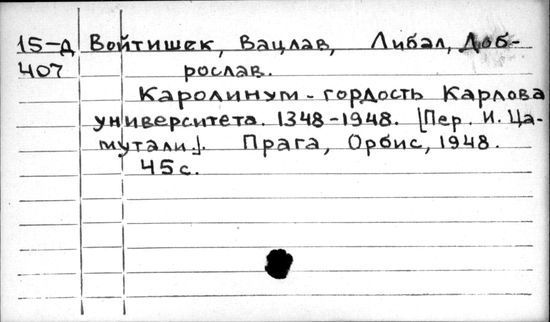 15-д Войтишек, Вацлав, Либал, Доб-
407 рослав.
Каролинум - гордость Карлова
университета. 1348-1948. [Пер. И. Ца-
мутали]. Прага, Орбис, 1948.
45 с.